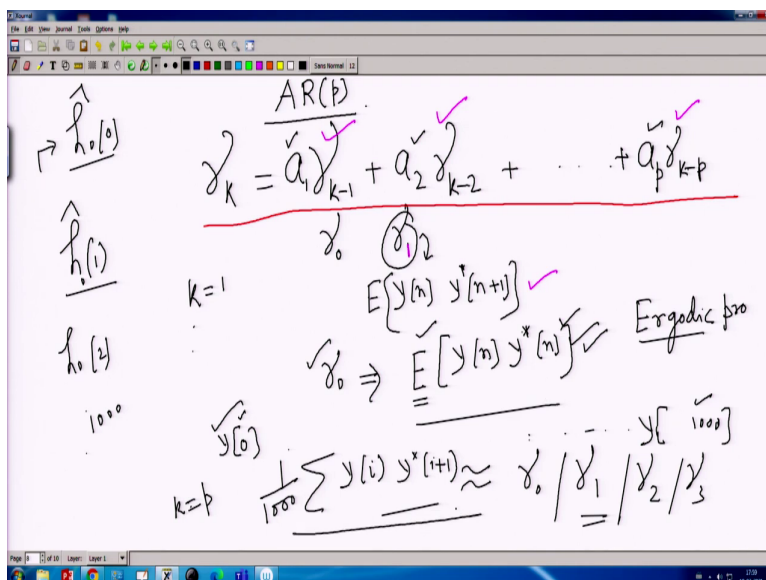 Xournal
File Edit View Journal Tools Options Help
Sans Normal 12
AR(p).
ĥ₀[0]
γ_k = a₁γ_{k-1} + a₂γ_{k-2} + ... + a_pγ_{k-p}
ĥ₀(1)
γ₀ γ₁
k=1
E{y(n) y*(n+1)}
h₀[2]
γ₀ ⇒ E[y(n) y*(n)]
Ergodic pro
1000
y[0] ...... y[1000]
k=p
1/1000 Σ y(i) y*(i+1) ≈ γ₀ / γ₁ / γ₂ / γ₃
Page 8 of 10 Layer: Layer 1
17:59